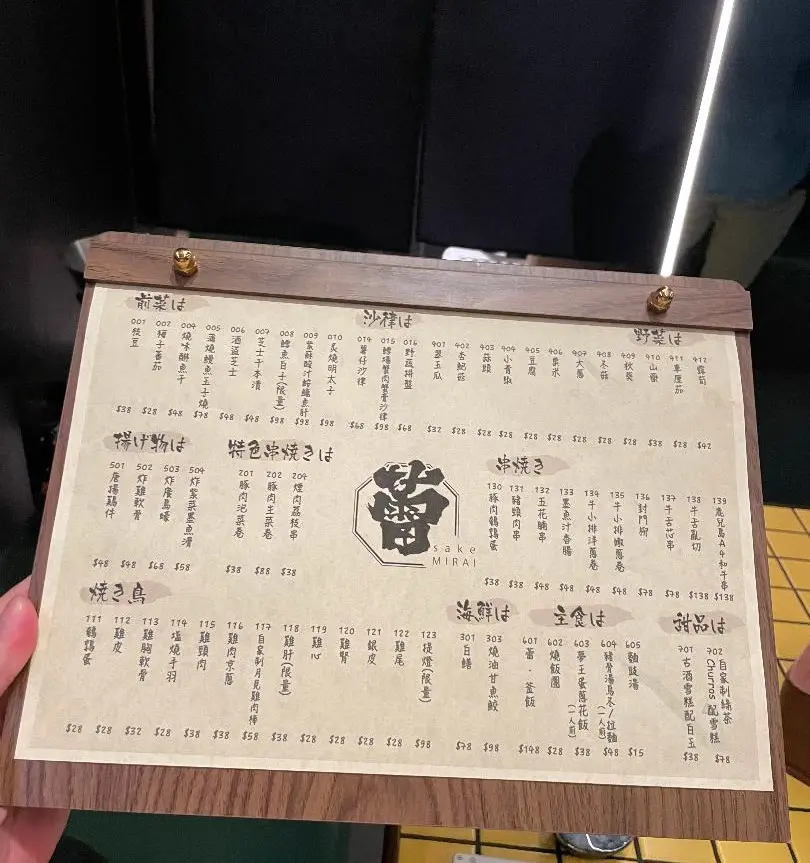 前菜は
001 枝豆 $38
002 梅子番茄 $28
004 燒味醂魚干 $48
005 蒲燒鰻魚玉子燒 $78
006 酒盜芝士 $48
007 芝士千本漬 $48
008 鱈魚白子(限量) $98
009 紫蘇酸汁鮟鱇魚肝 $98
010 炙燒明太子 $98
沙律は
014 薯仔沙律 $68
015 鱈場蟹肉蟹膏沙律 $98
016 野蔬拼盤 $68
野菜は
401 翠玉瓜 $32
402 杏鮑菇 $28
403 蒜頭 $28
404 小青椒 $28
405 豆腐 $28
406 粟米 $28
407 大蔥 $28
408 冬菇 $28
409 秋葵 $28
410 山藥 $38
411 車厘茄 $28
412 露筍 $42
揚げ物は
501 唐揚雞件 $48
502 炸雞軟骨 $48
503 炸廣島蠔 $68
504 炸紫菜墨魚滑 $58
特色串焼きは
201 豚肉泡菜卷 $38
202 豚肉生菜卷 $88
204 煙肉荔枝串 $38
蕾
sake
MIRAI
串焼き
130 豚肉鵪鶉蛋 $38
131 豬頸肉串 $38
132 五花腩串 $48
133 墨魚汁香腸 $48
134 牛小排洋蔥卷 $48
135 牛小排椒蔥卷 $48
136 封門柳 $78
137 牛舌芯串 $78
138 牛舌亂切 $138
139 鹿兒島A4和牛串 $138
焼き鳥
111 鵪鶉蛋 $28
112 雞皮 $28
113 雞胸軟骨 $32
114 塩燒手羽 $28
115 雞頸肉 $38
116 雞肉京蔥 $38
117 自家制月見雞肉棒 $58
118 雞肝(限量) $38
119 雞心 $28
120 雞腎 $28
121 銀皮 $28
122 雞尾 $28
123 提燈(限量) $98
海鮮は
301 白鱔 $78
303 燒油甘魚鮫 $98
主食は
601 蕾・釜飯 $148
602 燒飯團 $28
603 夢王蛋蔥花飯(一人前) $38
604 豬骨湯烏冬/拉麵(一人前) $48
605 麵豉湯 $15
甜品は
701 古酒雪糕配白玉 $38
702 自家制綠茶Churros配雪糕 $78